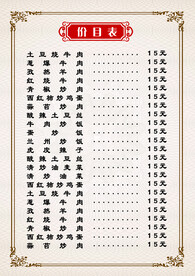 价目表
土豆烧牛肉 ············ 15元
葱爆牛肉 ············ 15元
孜然羊肉 ············ 15元
红烧牛肉 ············ 15元
青椒炒肉 ············ 15元
西红柿炒鸡蛋 ············ 15元
蒜苔炒肉 ············ 15元
酸辣土豆丝 ············ 15元
牛肉炒饭 ············ 15元
蛋炒饭 ············ 15元
兰州炒饭 ············ 15元
虎皮辣子 ············ 15元
酸辣土豆丝 ············ 15元
清炒油麦菜 ············ 15元
清炒油菜 ············ 15元
西红柿炒鸡蛋 ············ 15元
土豆烧牛肉 ············ 15元
葱爆牛肉 ············ 15元
孜然羊肉 ············ 15元
红烧牛肉 ············ 15元
青椒炒肉 ············ 15元
西红柿炒鸡蛋 ············ 15元
蒜苔炒肉 ············ 15元